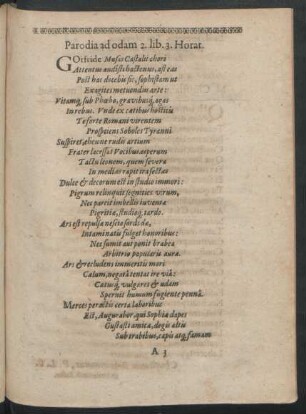 Parodia ad odam 2. lib. 3. Horat.
GOtfride Musis Castalii chori
Attentus audisti hactenus, ast eas
Post hac docebis sic, sophistam ut
Exagites metuendus arte:
Vitamq́, sub Phœbo, gravibusq́, agas
In rebus. Vnde ex artibus
Te forte Romani virentem
Prospiciens Soboles Tyranni
Suspiret, ah eune rudis artium
Frater lacessat Vatibus asperum
Tactu leonem, quem severa
In mediat rapit ira sectas
Dulce & decorum est in studio immori:
Pigrum relinquit segnities virum,
Nec parcit imbellis iuventa
Pigritiæ, studioq́, tardo.
Ars est repulsa nescia sordida,
Intaminatis fulget honoribus:
Nec sumit aut ponit brabea
Arbitrio popularis auræ.
Ars & recludens immeritis mori
Cœlum, negata tentat ire via:
Cœtusq́, vulgares & udam
Spernit humum fugiente pennâ.
Merces peractis certa laboribus
Est, Augurabor, qui Sophia dapes
Gustasti amica, degis altis
Sub trabibus, capis atq́, famam
A 3